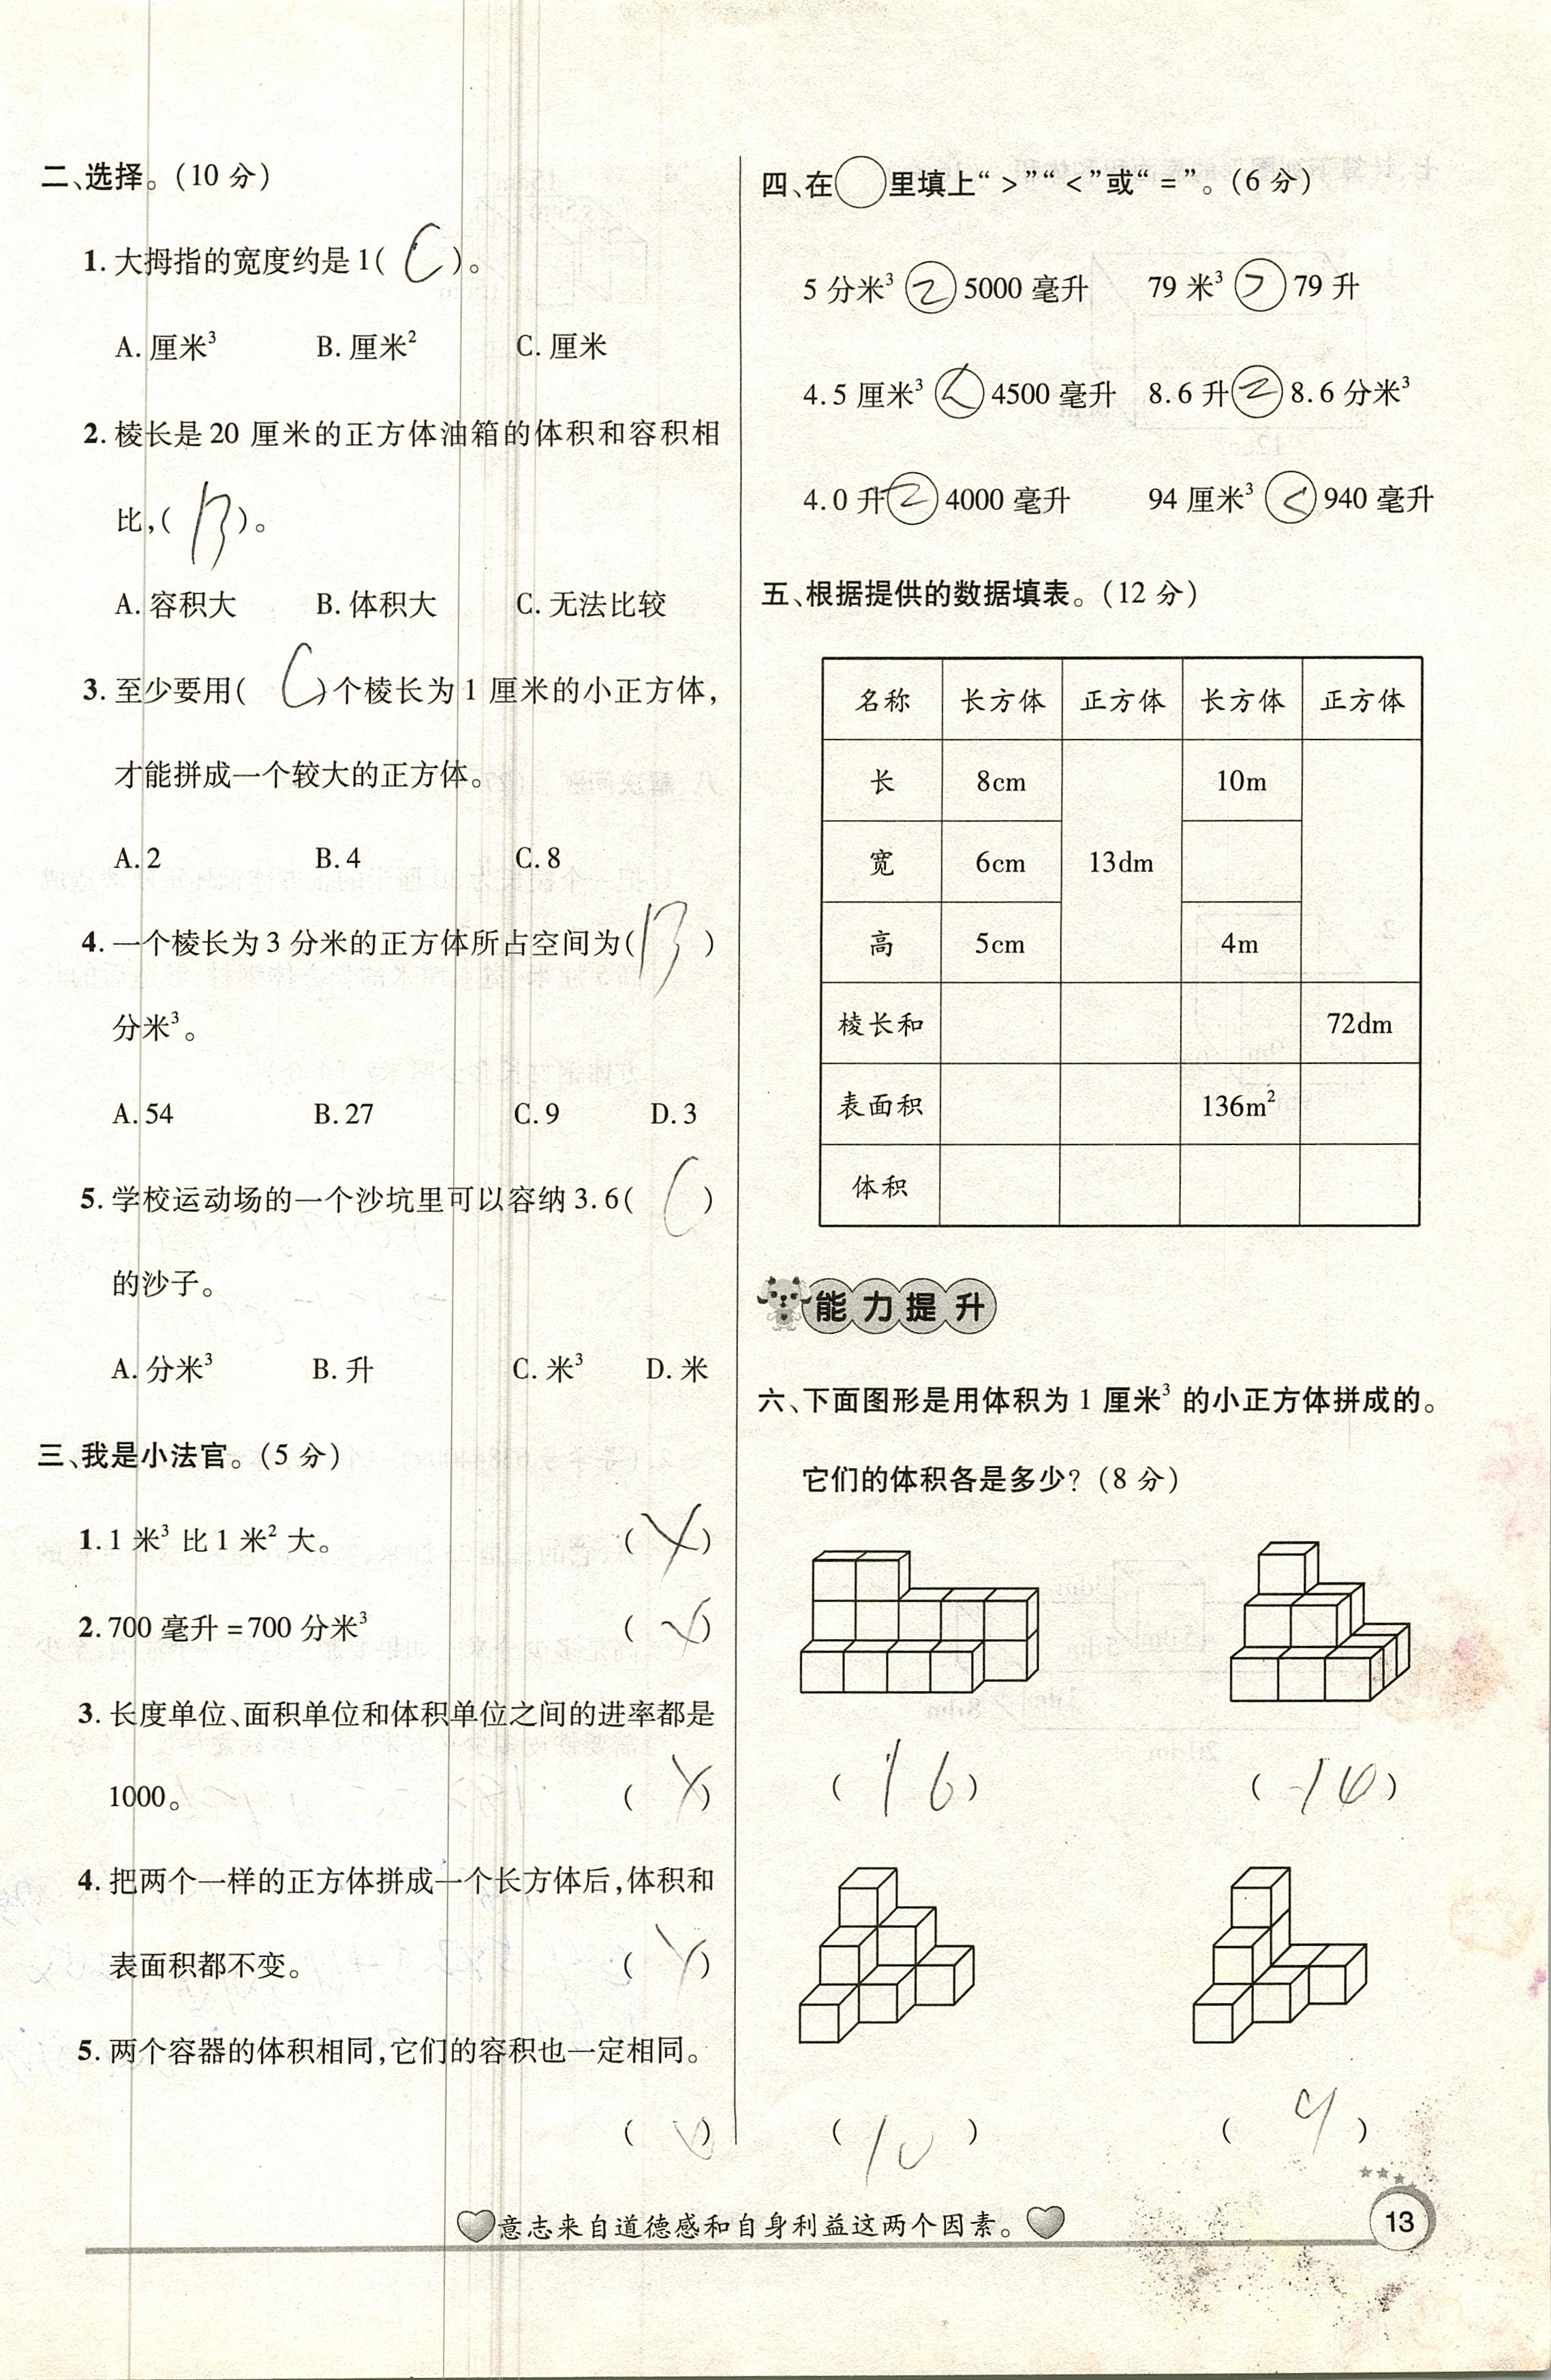 二、选择。(10 分)
1. 大拇指的宽度约是 1( C )。
A. 厘米³ B. 厘米² C. 厘米
2. 棱长是 20 厘米的正方体油箱的体积和容积相
比,( B )。
A. 容积大 B. 体积大 C. 无法比较
3. 至少要用( C )个棱长为 1 厘米的小正方体,
才能拼成一个较大的正方体。
A. 2 B. 4 C. 8
4. 一个棱长为 3 分米的正方体所占空间为( B )
分米³。
A. 54 B. 27 C. 9 D. 3
5. 学校运动场的一个沙坑里可以容纳 3.6( C )
的沙子。
A. 分米³ B. 升 C. 米³ D. 米
三、我是小法官。(5 分)
1. 1 米³ 比 1 米² 大。 ( × )
2. 700 毫升 = 700 分米³ ( × )
3. 长度单位、面积单位和体积单位之间的进率都是
1000。 ( × )
4. 把两个一样的正方体拼成一个长方体后,体积和
表面积都不变。 ( × )
5. 两个容器的体积相同,它们的容积也一定相同。
( × )
四、在○里填上“ > ”“ < ”或“ = ”。(6 分)
5 分米³ = 5000 毫升 79 米³ > 79 升
4.5 厘米³ < 4500 毫升 8.6 升 = 8.6 分米³
4.0 升 = 4000 毫升 94 厘米³ < 940 毫升
五、根据提供的数据填表。(12 分)
名称 长方体 正方体 长方体 正方体
长 8cm 10m
宽 6cm 13dm
高 5cm 4m
棱长和 72dm
表面积 136m²
体积
能力提升
六、下面图形是用体积为 1 厘米³ 的小正方体拼成的。
它们的体积各是多少? (8 分)
( 16 ) ( )
( 10 ) ( 9 )
意志来自道德感和自身利益这两个因素。
13